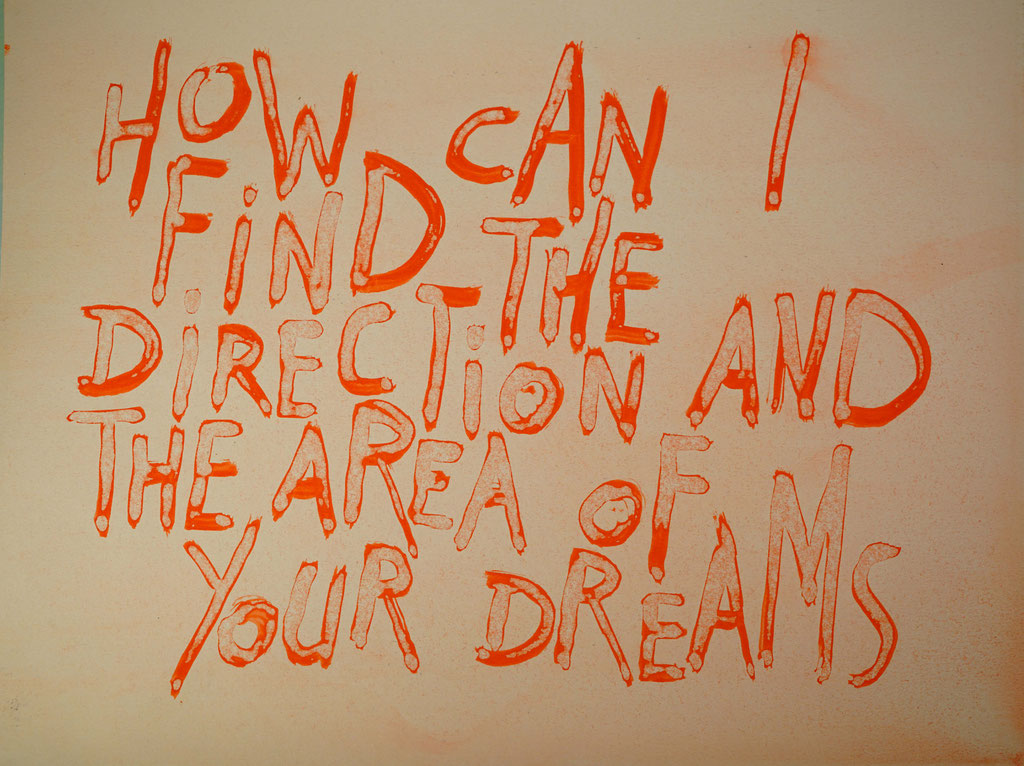 HOW CAN I
FiND THE
DIRECTiON AND
THE AREA OF
YOUR DREAMS